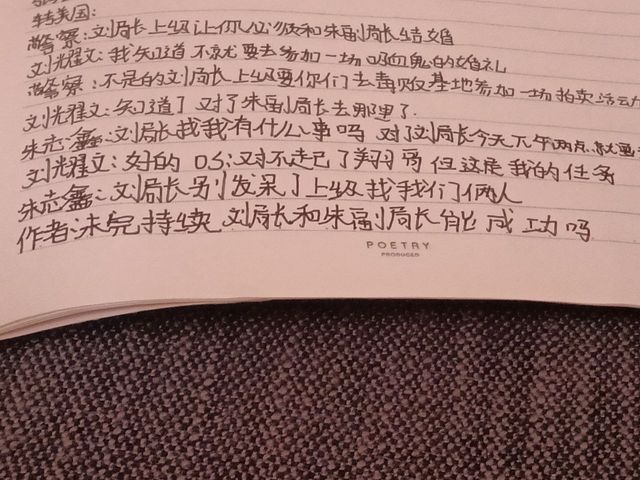 转美国:
警察:刘局长上级让你必须和朱副局长结婚
刘耀文:我知道不就要去参加一场吸血鬼的婚礼
警察:不是的刘局长上级要你们去毒贩基地参加一场拍卖活动
刘耀文:知道了 对了朱副局长去那里了.
朱志鑫:刘局长找我有什么事吗 对了刘局长今天下午两点就要
刘耀文:好的 OS:对不起了翔哥但这是我的任务
朱志鑫:刘局长别发呆了上级找我们俩人
作者:未完持续 刘局长和朱副局长能成功吗
POETRY
PRODUCED